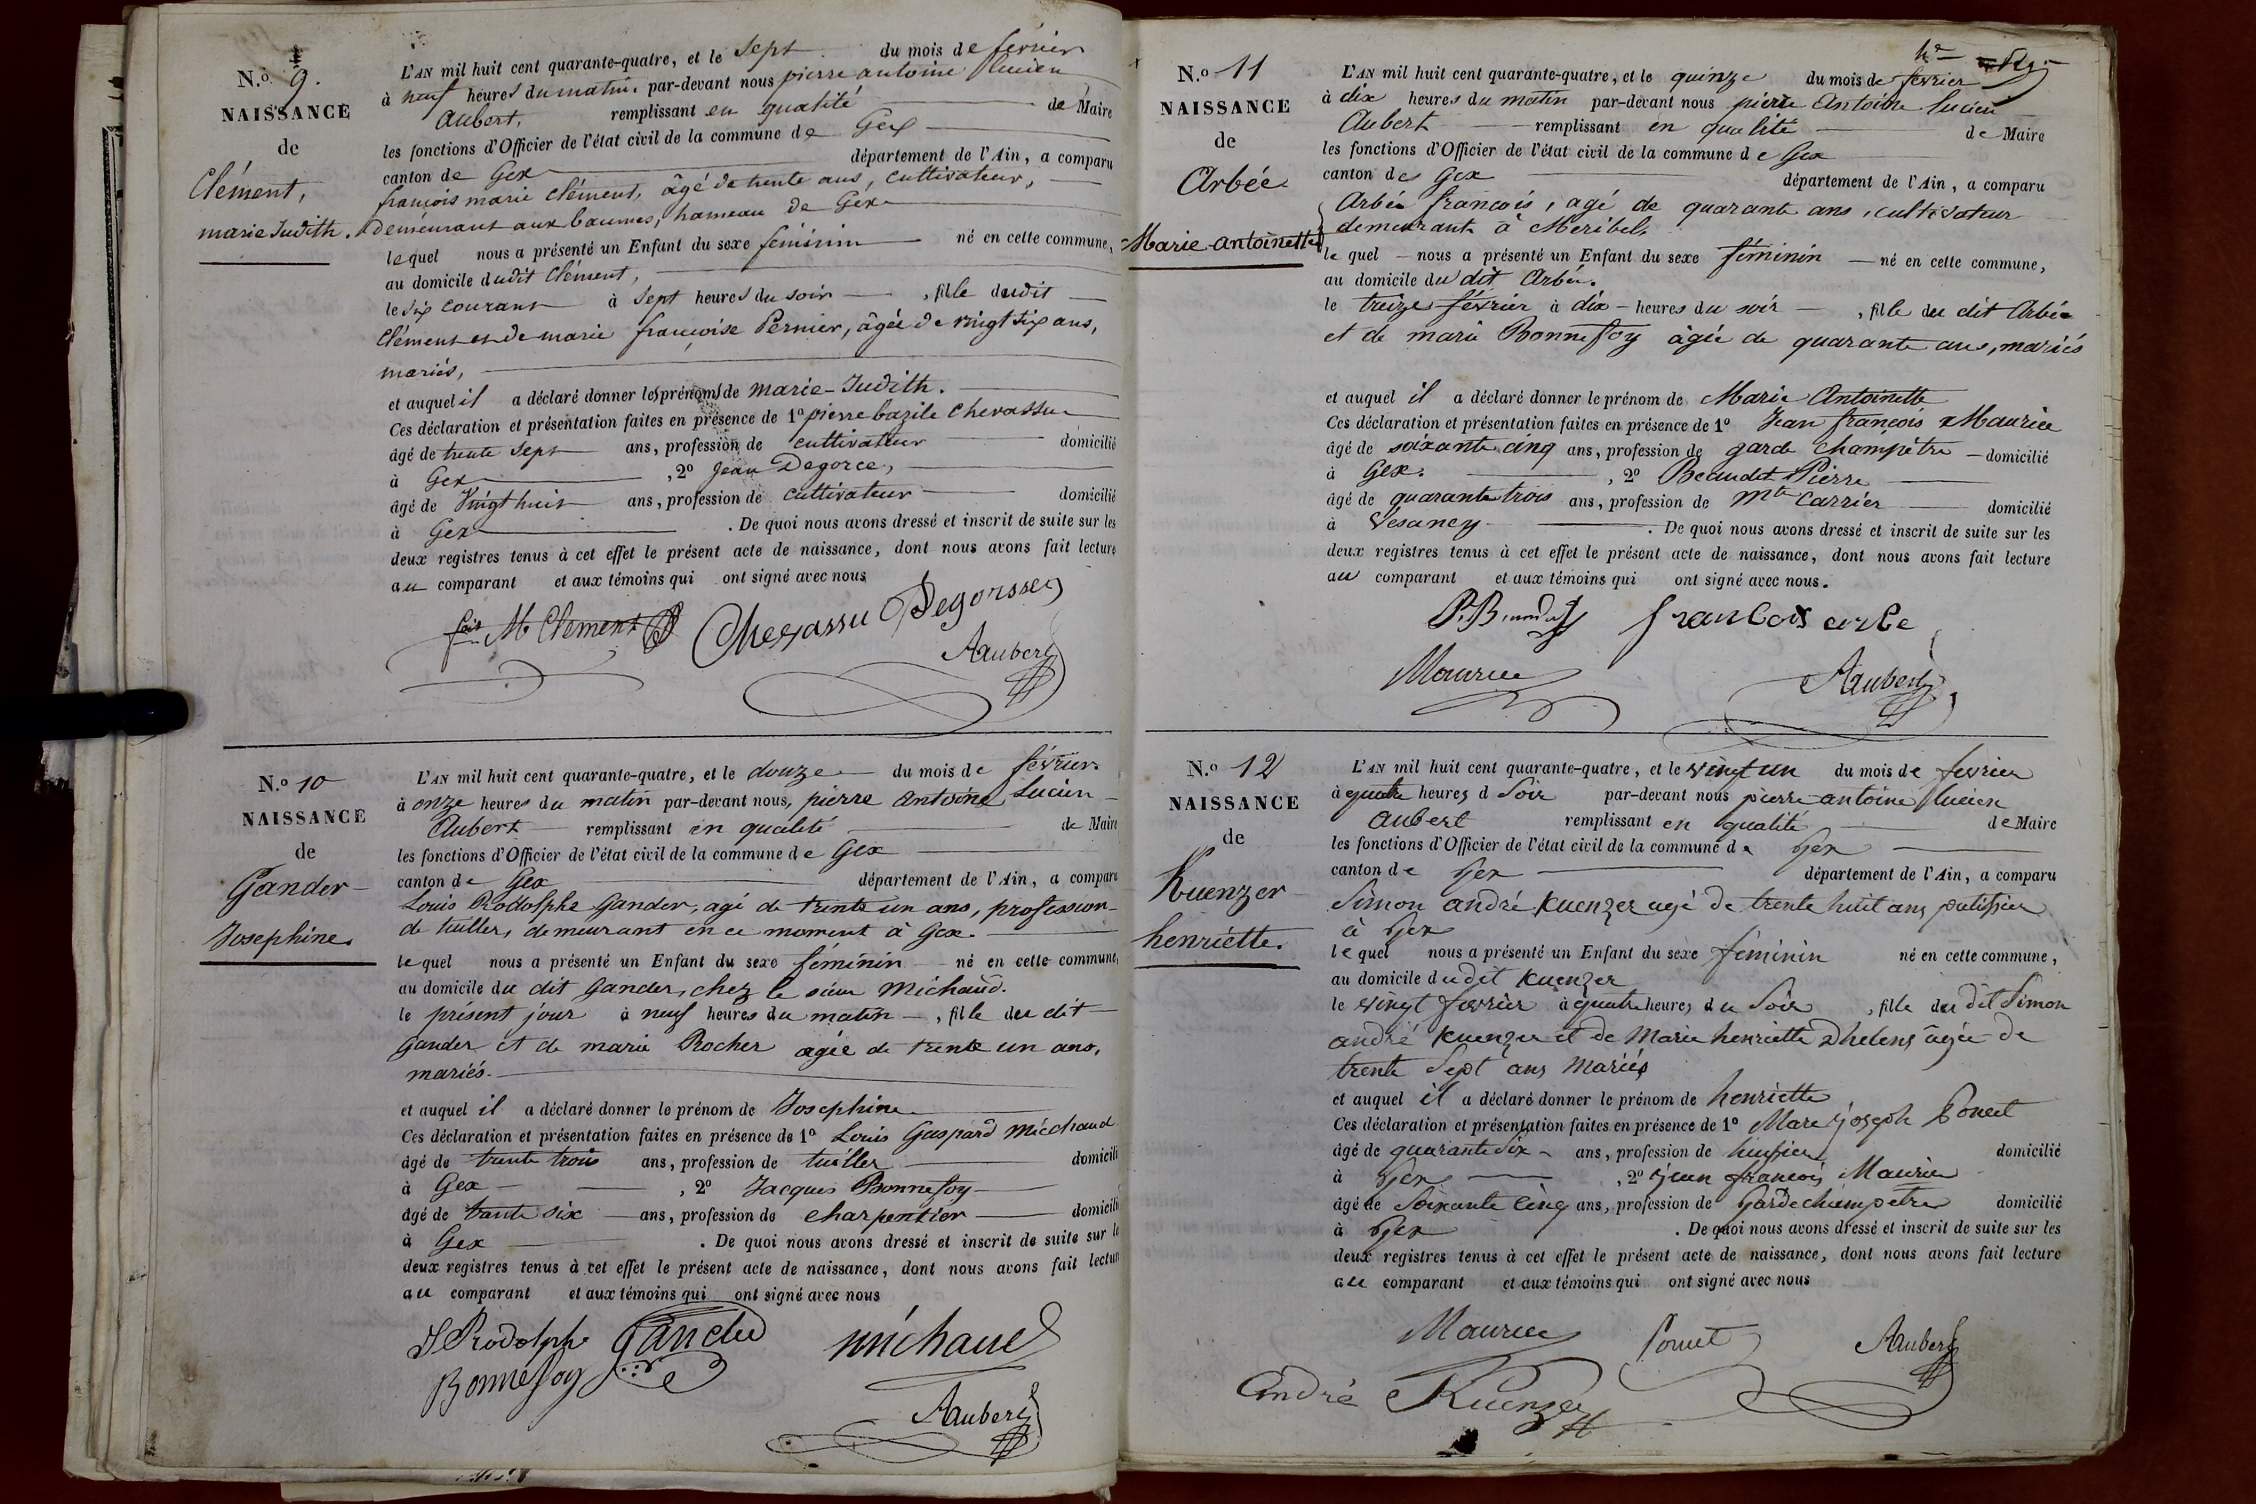 N.º 9.
NAISSANCE
de
Clément,
marie Judith.
L'AN mil huit cent quarante-quatre, et le sept du mois de février
à neuf heures du matin. par-devant nous pierre antoine lucien
Aubert, remplissant en qualité de Maire
les fonctions d'Officier de l'état civil de la commune de Gex
canton de Gex département de l'Ain, a comparu
françois marie Clément, âgé de trente ans, cultivateur,
demeurant aux baumes, hameau de Gex
lequel nous a présenté un Enfant du sexe féminin né en cette commune,
au domicile dudit Clément,
le six courant à sept heures du soir , fille dudit
Clément et de marie françoise Pernier, âgée de vingt six ans,
mariés,
et auquel il a déclaré donner les prénoms de marie-Judith.
Ces déclaration et présentation faites en présence de 1º pierre bazile Chevassu
âgé de trente sept ans, profession de cultivateur domicilié
à Gex , 2º Jean Degorce,
âgé de Vingt huit ans, profession de cultivateur domicilié
à Gex . De quoi nous avons dressé et inscrit de suite sur les
deux registres tenus à cet effet le présent acte de naissance, dont nous avons fait lecture
au comparant et aux témoins qui ont signé avec nous
fois M Clement Chevassu Degorsse
Aubert
N.º 10
NAISSANCE
de
Gander
Josephine.
L'AN mil huit cent quarante-quatre, et le douze du mois de février
à onze heures du matin par-devant nous, pierre Antoine Lucien
Aubert remplissant en qualité de Maire
les fonctions d'Officier de l'état civil de la commune de Gex
canton de Gex département de l'Ain, a comparu
Louis Rodolphe Gander, agé de trente un ans, profession
de tuiller, demeurant en ce moment à Gex.
lequel nous a présenté un Enfant du sexe féminin né en cette commune,
au domicile du dit Gander, chez le sieur Michaud.
le présent jour à neuf heures du matin , fille du dit
Gander et de marie Rocher agée de trente un ans,
mariés.
et auquel il a déclaré donner le prénom de Josephine
Ces déclaration et présentation faites en présence de 1º Louis Gaspard Micchaud
âgé de trente trois ans, profession de tuiller domicili
à Gex , 2º Jacques Bonnefoy
âgé de trente six ans, profession de charpentier domicili
à Gex . De quoi nous avons dressé et inscrit de suite sur le
deux registres tenus à cet effet le présent acte de naissance, dont nous avons fait lectur
au comparant et aux témoins qui ont signé avec nous
Rodolphe Gander michaud
Bonnefoy
Aubert
N.º 11
NAISSANCE
de
Arbée
Marie-Antoinette
L'AN mil huit cent quarante-quatre, et le quinze du mois de février
à dix heures du matin par-devant nous pierre Antoine lucien
Aubert remplissant en qualité de Maire
les fonctions d'Officier de l'état civil de la commune de Gex
canton de Gex département de l'Ain, a comparu
Arbée françois, agé de quarante ans, cultivateur
demeurant à Meribel,
le quel nous a présenté un Enfant du sexe féminin né en cette commune,
au domicile du dit Arbée.
le treize février à dix heures du soir , fille du dit Arbée
et de marie Bonnefoy âgée de quarante ans, mariés
et auquel il a déclaré donner le prénom de Marie Antoinette
Ces déclaration et présentation faites en présence de 1º Jean françois Maurice
âgé de soixante cinq ans, profession de garde champêtre domicilié
à Gex. , 2º Beaudet Pierre
âgé de quarante trois ans, profession de Mtre Carrier domicilié
à Vesancy . De quoi nous avons dressé et inscrit de suite sur les
deux registres tenus à cet effet le présent acte de naissance, dont nous avons fait lecture
au comparant et aux témoins qui ont signé avec nous.
francois arbe
Maurice Aubert
N.º 12
NAISSANCE
de
Kuenzer
henriette.
L'AN mil huit cent quarante-quatre, et le vingt un du mois de fevrier
à quatre heures d Soir par-devant nous pierre antoine lucien
aubert remplissant en qualité de Maire
les fonctions d'Officier de l'état civil de la commune de Gex
canton de Gex département de l'Ain, a comparu
Simon andré Kuenzer agé de trente huit ans patissier
à Gex
lequel nous a présenté un Enfant du sexe féminin né en cette commune,
au domicile dudit Kuenzer
le vingt fevrier à quatre heures du Soir , fille du dit Simon
andré Kuenzer et de Marie henriette Dhelens âgée de
trente Sept ans Mariés
et auquel il a déclaré donner le prénom de henriette
Ces déclaration et présentation faites en présence de 1º Marc joseph Poncet
âgé de quarante Six ans, profession de huissier domicilié
à Gex , 2º Jean françois Maurice
âgé de Soixante Cinq ans, profession de Garde champetre domicilié
à Gex . De quoi nous avons dressé et inscrit de suite sur les
deux registres tenus à cet effet le présent acte de naissance, dont nous avons fait lecture
au comparant et aux témoins qui ont signé avec nous
Maurice Poncet Aubert
André Kuenzer